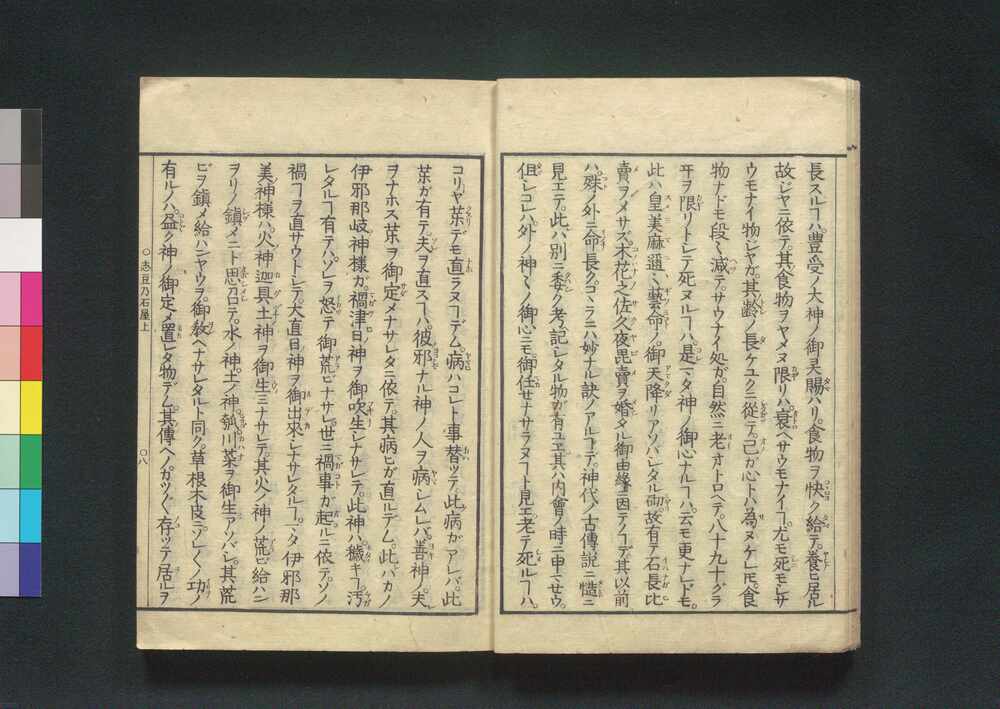 長スルヿハ豊受ノ大神ノ御灵賜ハリ食物ヲ快ク給テ養ヒ居ル
故ジヤニ依テ其食物ヲヤメヌ限リハ衰ヘサウモナイヿ尤モ死モシサ
ウモナイ物ジヤガ其齢ノ長ケユクニ從テ己ガ心トハ為ヌケレ𪜈食
物ナドモ段々減テサウナイ処ガ自然ニ老オトロヘテ八十九十グラ
井ヲ限リトシテ死ヌルヿハ是マタ神ノ御心ナルヿハ云モ更ナレドモ
此ハ皇美麻邇々藝命ノ御天降リアソバシタル砌故有テ石長比
賣ヲメサズ木花之佐久夜毘賣ヲ婚タル御由緣ニ因テノヿデ其以前
ハ殊ノ外ニ命長クコヽラニハ妙ナル訣ノアルヿデ神代ノ古傳説ニ慥ニ
見エテ此ハ別ニ委ク考記シタル物ガ有ユヱ其ハ内會ノ時ニ申セウ
但シコレハ外ノ神々ノ御心ニモ御任セナサラヌヿト見エ老テ死ルヿハ
コリヤ藥デモ直ラヌヿデム病ハコレト事替ッテ此病ガアレバ此
藥ガ有テ夫ヲ直スヿハ彼邪ナル神ノ人ヲ病シムレバ善神ノ夫
ヲナホス藥ヲ御定メナサレタニ依テ其病ヒガ直ルデム此ハカノ
伊邪那岐神様ガ禍津日神ヲ御吹生シナサレテ此神ハ穢キヿ汚
レタルヿ有テハソレヲ怒テ御荒ビナサレ世ニ禍事ガ起ルニ依テソノ
禍ヿヲ直サウトシテ大直日神ヲ御出來シナサレタルヿマタ伊邪那
美神様ハ火神迦具土神ヲ御生ミナサレテ其火ノ神ノ荒ビ給ハン
ヲリノ鎮メニト思召テ水ノ神土ノ神瓠川菜ヲ御生アソバシ其荒
ビヲ鎮メ給ハンヤウヲ御敎ヘナサレタルト同ク草根木皮ニソレ〳〵ノ功ノ
有ルノハ盡ク神ノ御定メ置レタ物デム其傳ヘノカツ〴〵存ッテ居ルヲ
○志豆乃石屋上
○八